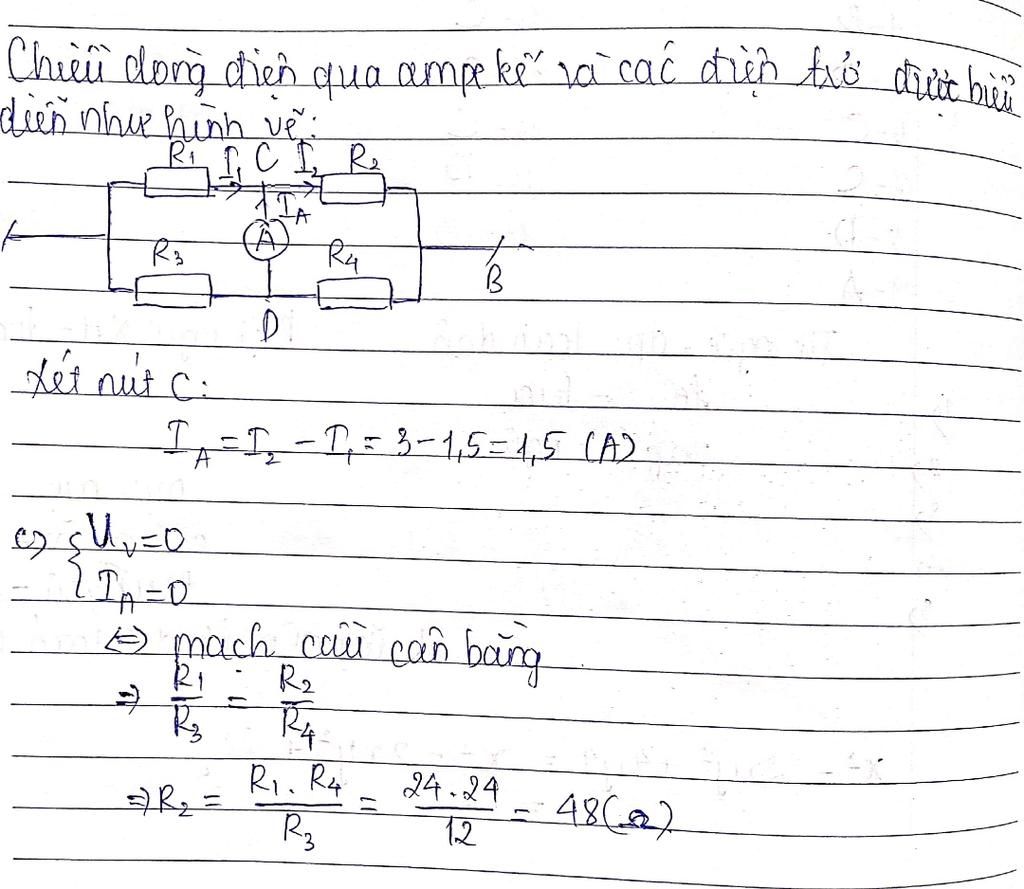 Chiều dòng điện qua ampe kế và các điện trở được biểu
diễn như hình vẽ:
R₁ I₁ C I₂ R₂
I_A
A
R₃ R₄
B
D
Xét nút C:
I_A = I₂ - I₁ = 3 - 1,5 = 1,5 (A)
c) { U_V = 0
I_A = 0
⇔ mạch cầu cân bằng
⇒ R₁/R₃ = R₂/R₄
⇒ R₂ = R₁.R₄/R₃ = 24.24/12 = 48(Ω)